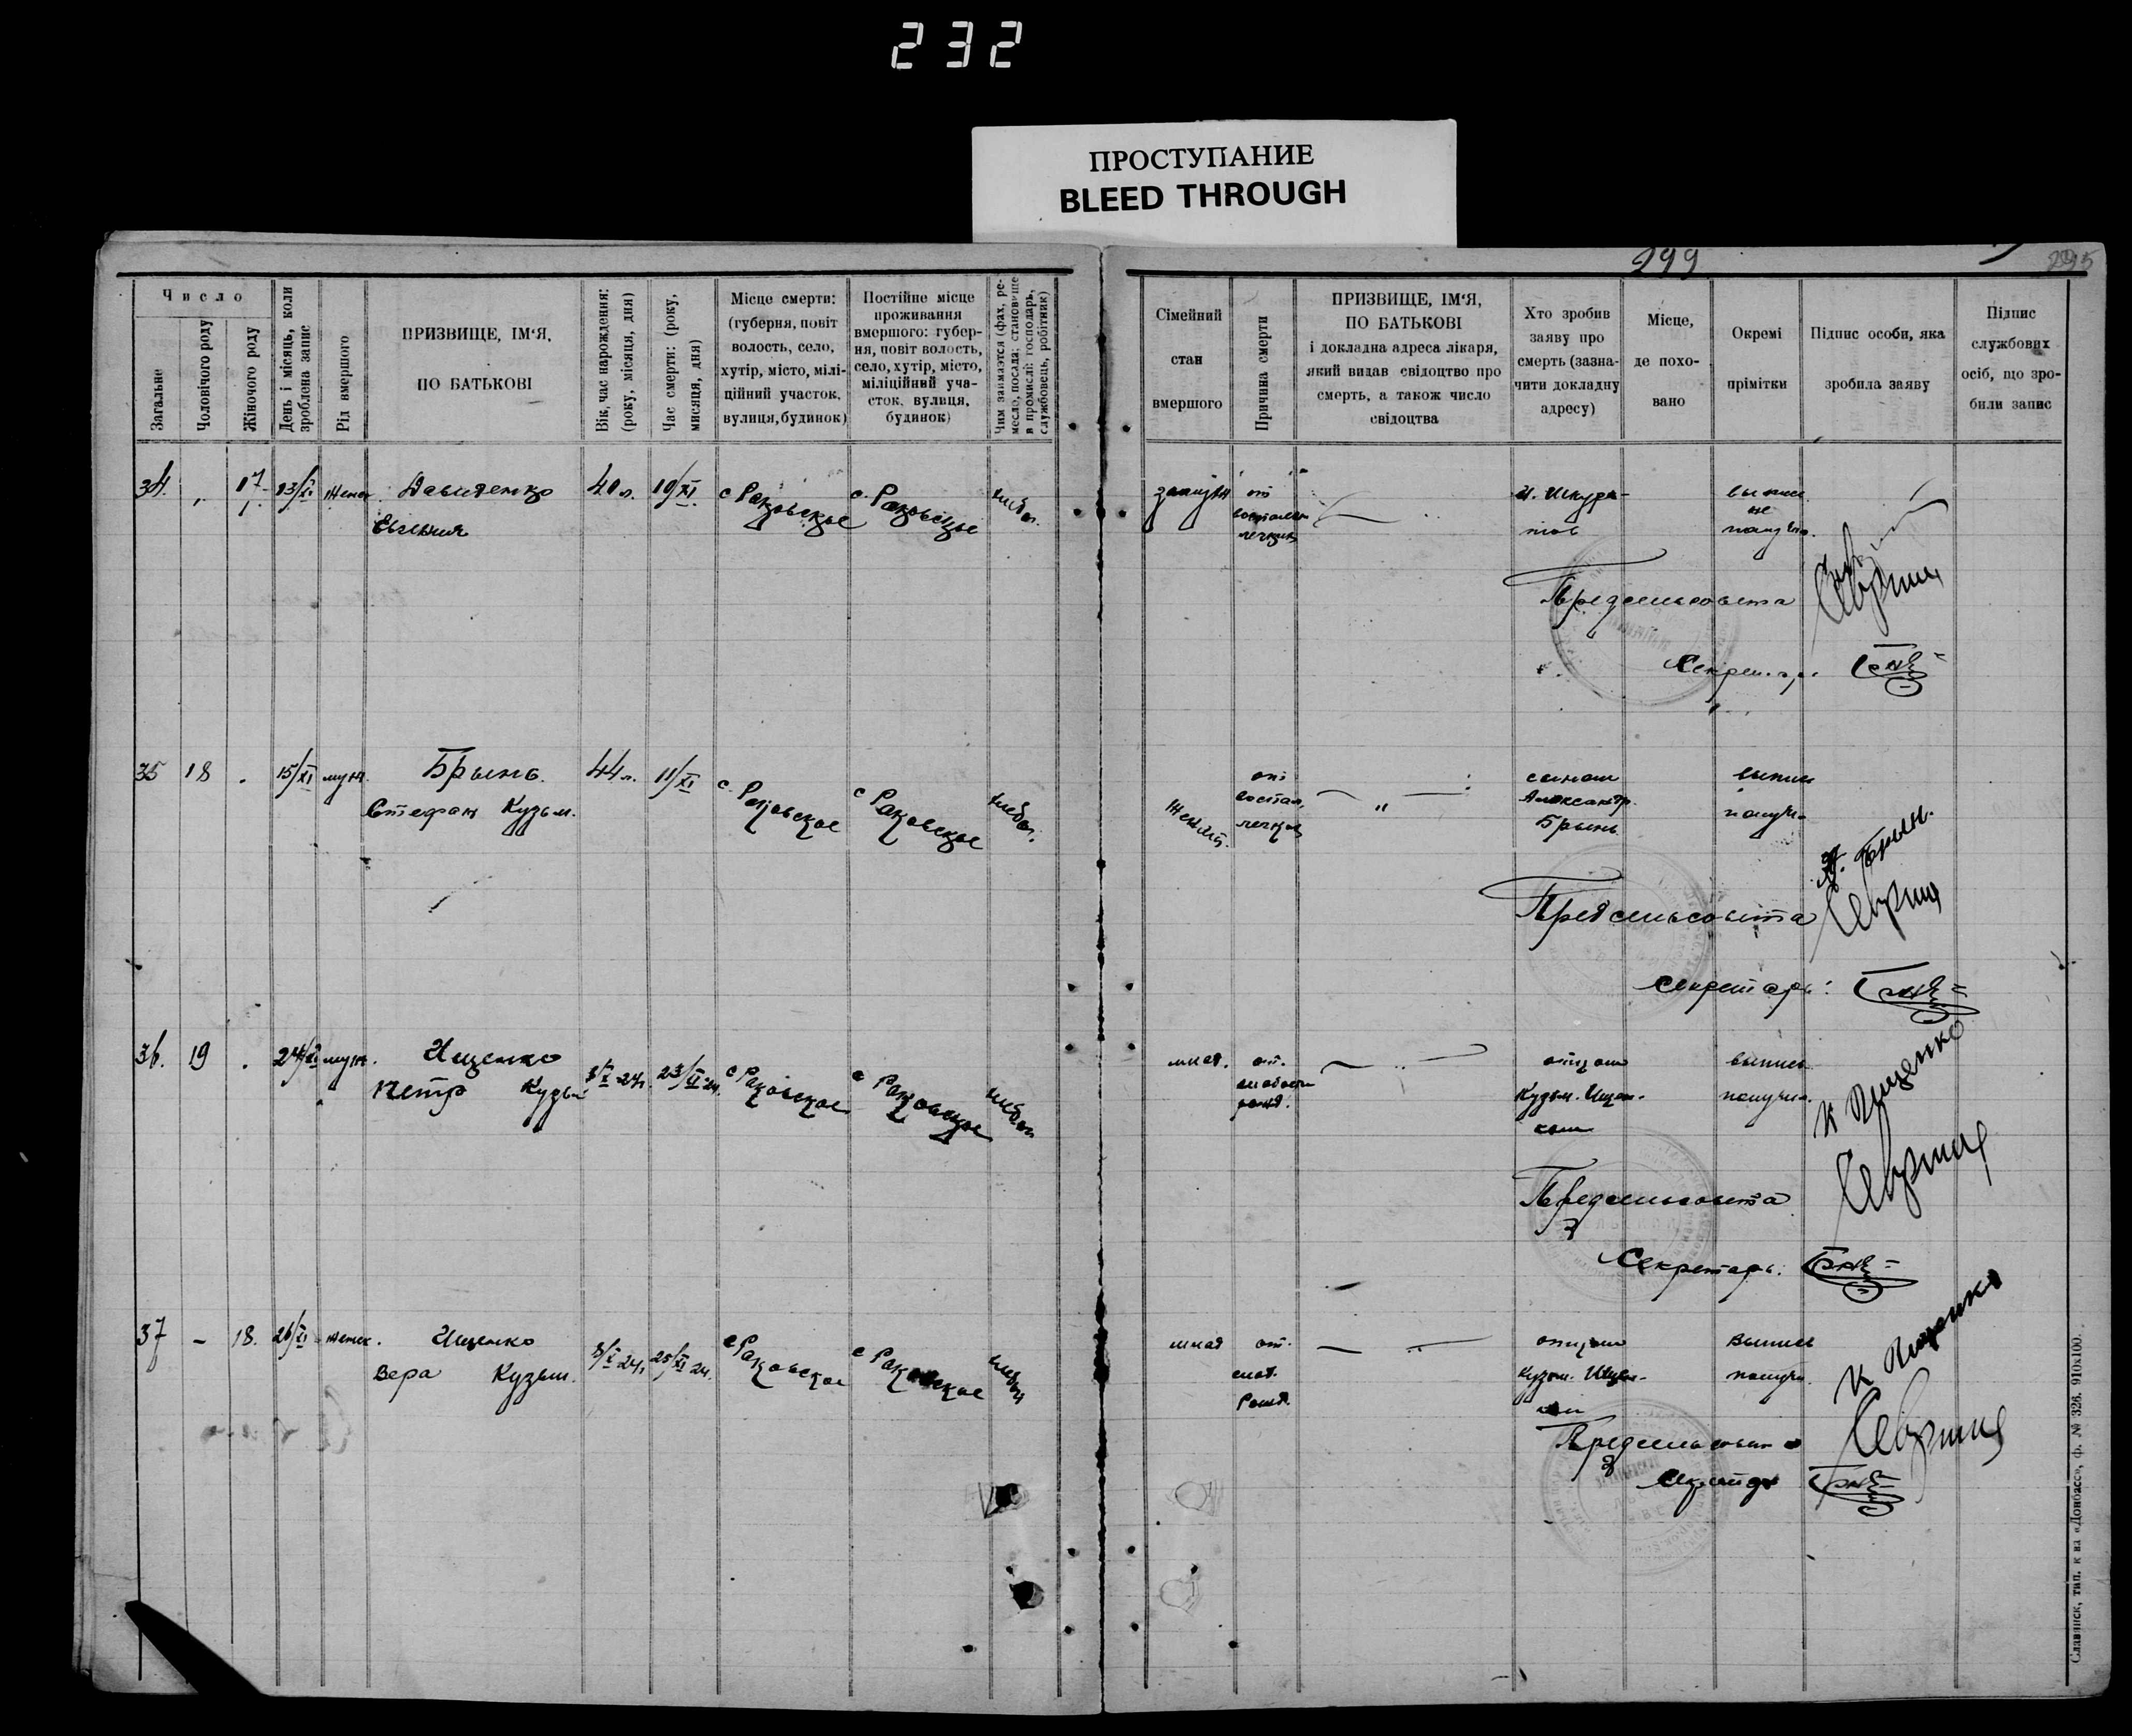 232
ПРОСТУПАНИЕ
BLEED THROUGH
299
295
Число
Загальне
Чоловічого роду
Жіночого роду
День і місяць, коли
зроблена запис
Рід вмершого
ПРИЗВИЩЕ, ІМ'Я,
ПО БАТЬКОВІ
Вік, час народження:
(року, місяця, дня)
Час смерти: (року,
мисяця, дня)
Місце смерти:
(губерня, повіт
волость, село,
хутір, місто, мілі-
ційний участок,
вулиця, будинок)
Постійне місце
проживання
вмершого: губер-
ня, повіт волость,
село, хутір, місто,
міліційний уча-
сток, вулиця,
будинок)
Чим займается (фах, ре-
месло, посада: становище
в промислі: господарь,
службовець, робітник)
Сімейний
стан
вмершого
Причина смерти
ПРИЗВИЩЕ, ІМ'Я,
ПО БАТЬКОВІ
і докладна адреса лікаря,
який видав свідоцтво про
смерть, а також число
свідоцтва
Хто зробив
заяву про
смерть (зазна-
чити докладну
адресу)
Місце,
де похо-
вано
Окремі
прімітки
Підпис особи, яка
зробила заяву
Підпис
службових
осіб, що зро-
били запис
34. 17 13/XI женск. Давиденко 40 л. 10/XI с Раковское с. Раковское хлебоп.
Евгения
замужн от
воспален
легких
И. Шкура-
тов
выпис
не
получ.
Предсельсовета
Секретарь
35 18 15/XI муж. Брынь 44 л. 11/XI с. Раковское с Раковское хлебоп.
Стефан Кузьм.
женат. от
воспал.
легких
"
сыном
Александр.
Брынь
выпись
получ.
Брын.
Предсельсовета
Секретарь:
36. 19 24/XI муж. Ищенко с Раковское с Раковское хлебоп
Петр Кузьм 8/X 24г. 23/XI 24.
млад. от.
слабости
рожд.
отцом
Кузьм. Ищен-
ком
выпись
получил.
К Ищенко
Предсельсовета
Секретарь.
37 – 18. 26/XI женск. Ищенко с Раковское с Раковское хлебоп
Вера Кузьм. 8/X 24г. 25/XI 24.
млад от.
слаб.
рожд.
отцом
Кузьм. Ищен-
ком
Выпись
получ.
К Ищенко
Предсельсовет
Секретарь
Славянск, тип. к ва «Донбасс», ф. № 326. 910х100.